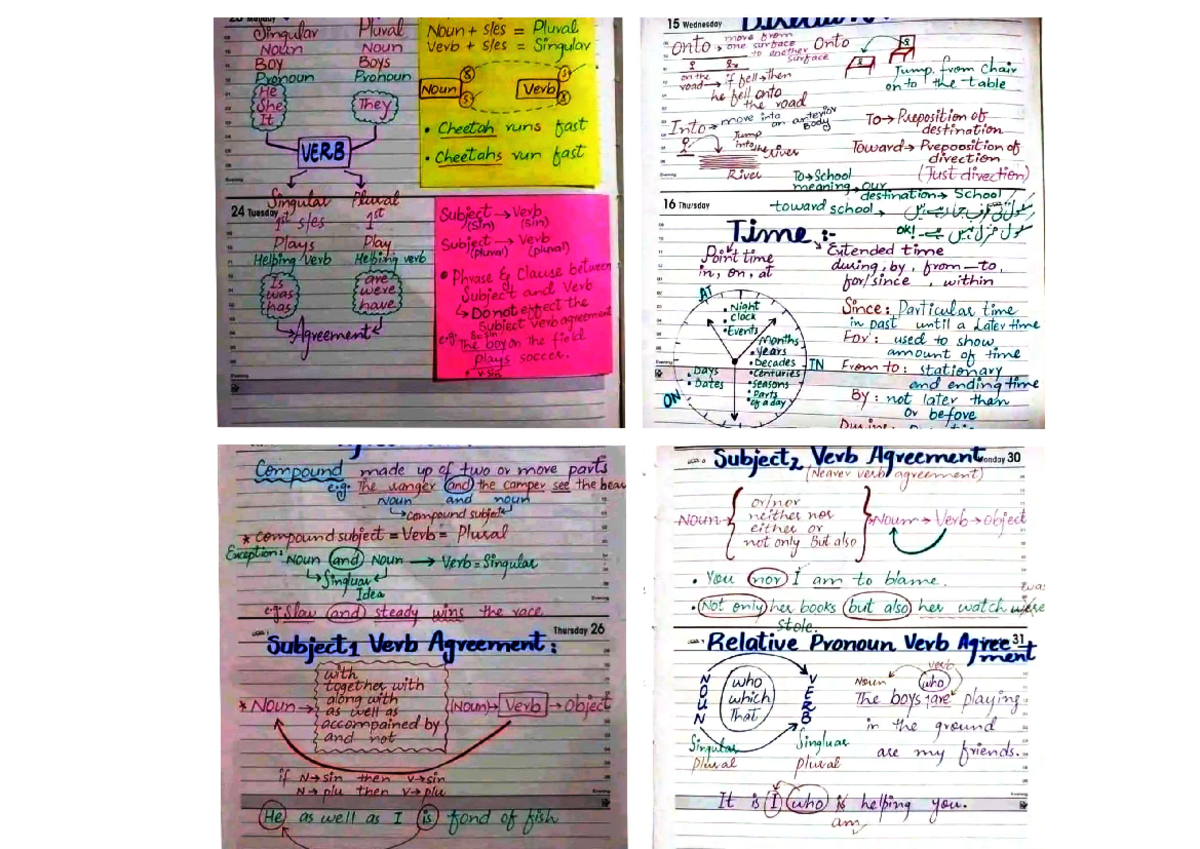 23 Monday
Singular Plural
Noun Noun
Boy Boys
Pronoun Pronoun
He
She They
It
VERB
Singular Plural
24 Tuesday
1st s/es 1st
Plays Play
Helping verb Helping verb
Is are
was were
has have
Agreement
Noun + s/es = Plural
Verb + s/es = Singular
Noun Verb
• Cheetah runs fast
• Cheetahs run fast
Subject → Verb
(Sin) (Sin)
Subject → Verb
(plural) (plural)
• Phrase & Clause between
Subject and Verb
↳ Do not effect the
Subject verb agreement
e.g: The boy on the field
plays soccer.
v-sin
Evening
15 Wednesday
Direction
Onto → move from
one surface
to another
surface
Onto
on the
road → if fell → then
he fell onto
the road
Jump from chair
on to the table
Into → move into
an anterior
Body
Jump
into the River
River
To → Preposition of
destination
Toward → Preposition of
direction
(Just direction)
To → School
meaning → our
destination → School
toward school →
OK!
Evening
16 Thursday
Time :-
Point time
in, on, at
Extended time
during, by, from — to,
for/since, within
AT
• Night
• Clock
• Events
IN
• Months
• Years
• Decades
• Centuries
• Seasons
• Parts
of a day
ON
• Days
• Dates
Since: Particular time
in past until a Later time
For: used to show
amount of time
From to: stationary
and ending time
By: not later than
or before
Evening
Compound made up of two or more parts
e.g: The ranger and the camper see the bear
Noun and noun
↳ compound subject
* compound subject = Verb = Plural
Exception:
Noun and Noun → Verb = Singular
↳ Singluar
Idea
e.g Slow and steady wins the race.
Thursday 26
Subject1 Verb Agreement:
* Noun →
with
together with
along with
as well as
accompained by
and not
(Noun) → Verb → Object
if N → sin then V → sin
N → plu then V → plu
He as well as I is fond of fish
Subject2 Verb Agreement
Monday 30
(Nearer verb agreement)
Noun →
or/nor
neither nor
either or
not only But also
Noun → Verb → object
• You nor I am to blame.
was
• Not only her books but also her watch were
Stole.
31
Relative Pronoun Verb Agreement
NOUN
who
which
That
VERB
Singular Singluar
plural plural
verb
Noun who
The boys are playing
in the ground
are my friends.
Evening
It is I who is helping you.
am